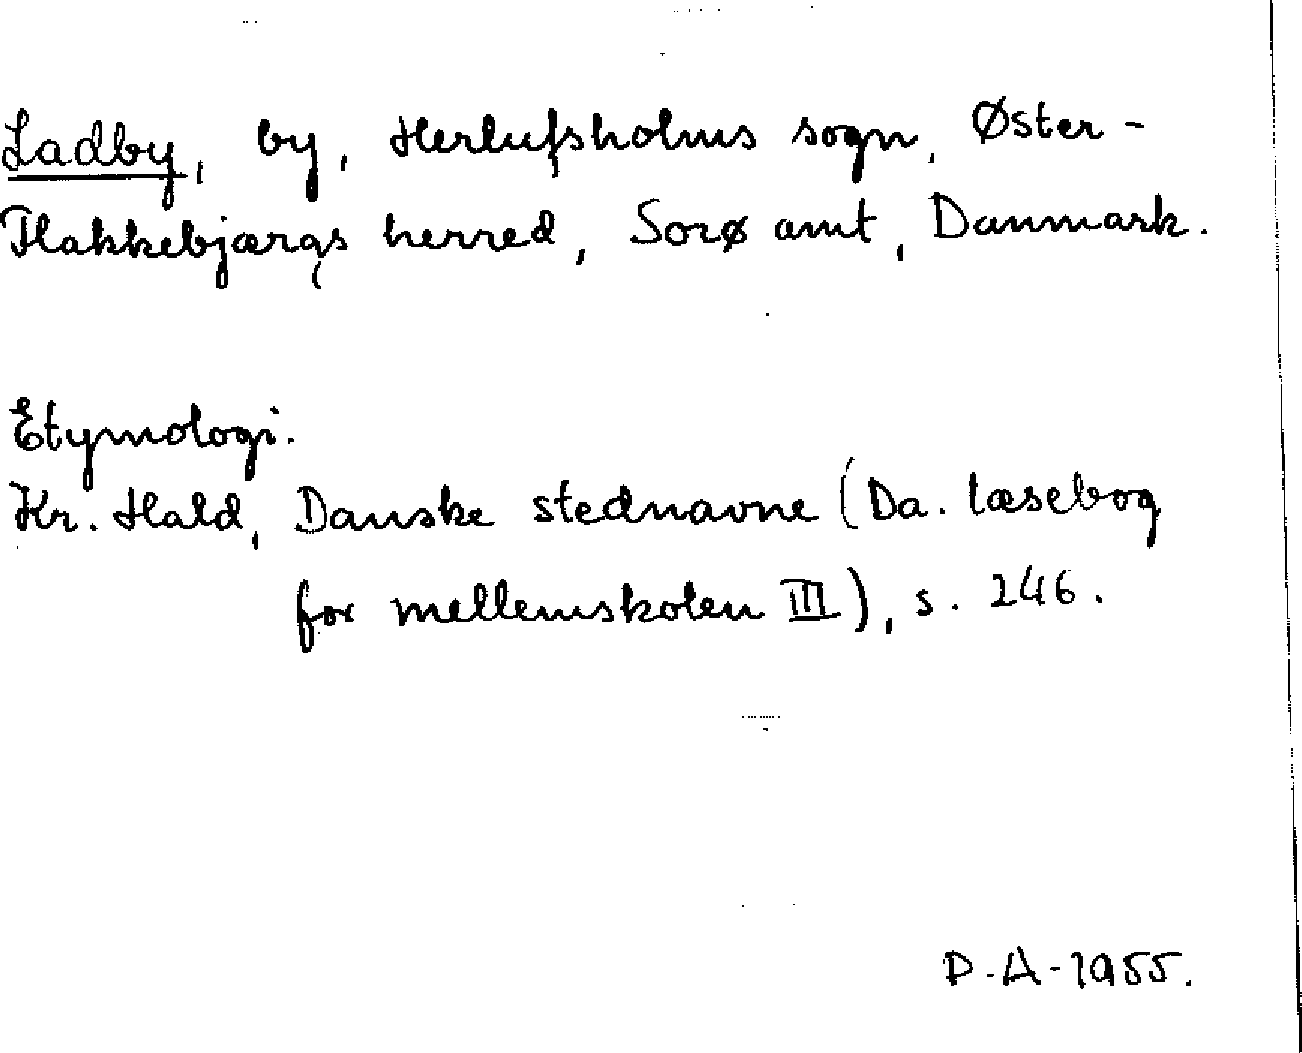 Ladby, by, Herlufsholms sogn, Øster-
Flakkebjærgs herred, Sorø amt, Danmark.
Etymologi.
Kr. Hald, Danske stednavne (Da. læsebog
for mellemskolen III), s. 246.
P.A-1955.